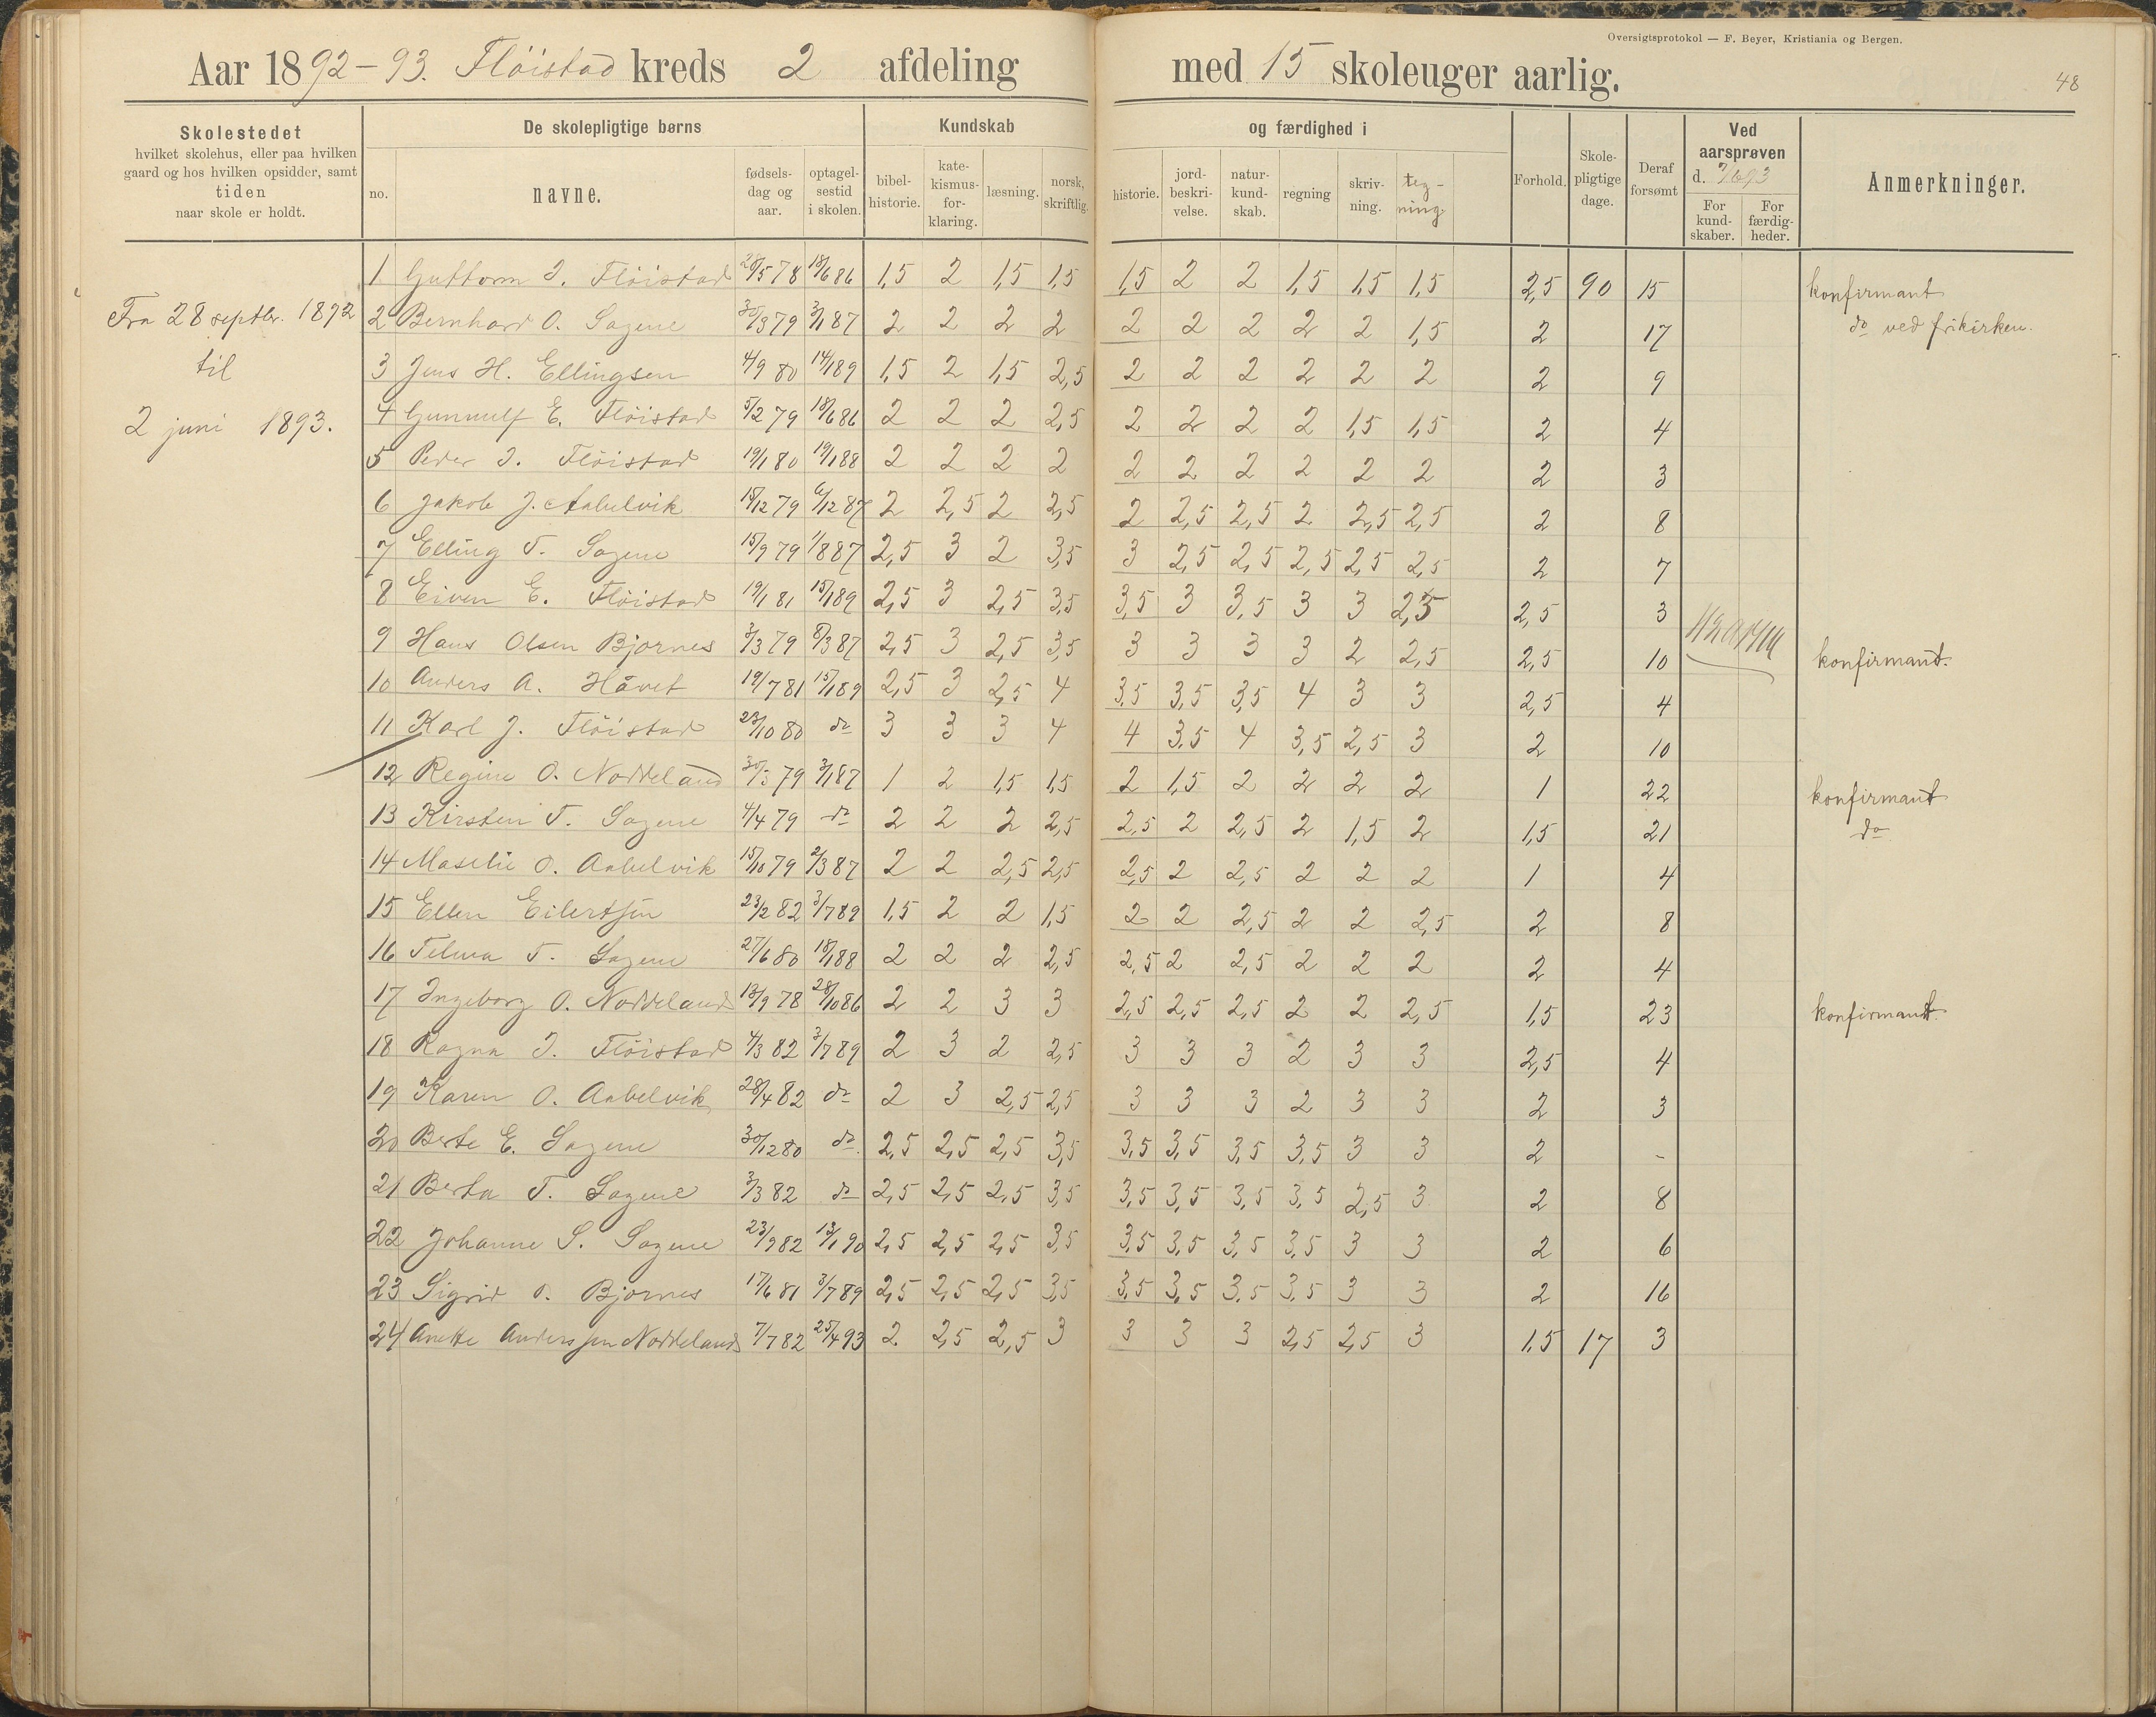 Oversigtsprotokol — F. Beyer, Kristiania og Bergen.
48
Aar 1892-93. Flöistad kreds 2 afdeling med 15 skoleuger aarlig.
Skolestedet
hvilket skolehus, eller paa hvilken
gaard og hos hvilken opsidder, samt
tiden
naar skole er holdt.
De skolepligtige børns
no. navne. fødselsdag og aar. optagelsestid i skolen.
Kundskab og færdighed i
bibelhistorie. katekismusforklaring. læsning. norsk, skriftlig. historie. jordbeskrivelse. naturkundskab. regning skrivning. tegning.
Forhold. Skolepligtige dage. Deraf forsømt
Ved aarsprøven d. 7/6 93
For kundskaber. For færdigheder.
Anmerkninger.
Fra 28 septbr. 1892
til
2 juni 1893.
1 Guttorm J. Flöistad 28/5 78 18/6 86 1,5 2 1,5 1,5 1,5 2 2 1,5 1,5 1,5 2,5 90 15 konfirmant
2 Bernhard O. Sagene 30/3 79 3/1 87 2 2 2 2 2 2 2 2 2 1,5 2 17 do ved frikirken.
3 Jens H. Ellingsen 4/9 80 14/1 89 1,5 2 1,5 2,5 2 2 2 2 2 2 2 9
4 Gunnulf E. Flöistad 5/2 79 18/6 86 2 2 2 2,5 2 2 2 2 1,5 1,5 2 4
5 Peder J. Flöistad 19/1 80 19/1 88 2 2 2 2 2 2 2 2 2 2 2 3
6 Jakob J. Aabelvik 15/12 79 6/12 87 2 2,5 2 2,5 2 2,5 2,5 2 2,5 2,5 2 8
7 Elling T. Sagene 15/9 79 1/8 87 2,5 3 2 3,5 3 2,5 2,5 2,5 2,5 2,5 2 7
8 Eiven E. Flöistad 19/1 81 15/1 89 2,5 3 2,5 3,5 3,5 3 3,5 3 3 2,5 2,5 3
9 Hans Olsen Bjornes 3/3 79 8/3 87 2,5 3 2,5 3,5 3 3 3 3 2 2,5 2,5 10 konfirmant.
10 Anders A. Håvet 19/7 81 15/1 89 2,5 3 2,5 4 3,5 3,5 3,5 4 3 3 2,5 4
11 Karl J. Flöistad 23/10 80 do 3 3 3 4 4 3,5 4 3,5 2,5 3 2 10
12 Regine O. Noddeland 30/3 79 3/1 87 1 2 1,5 1,5 2 1,5 2 2 2 2 1 22 konfirmant
13 Kirsten T. Sagene 4/4 79 do 2 2 2 2,5 2,5 2 2,5 2 1,5 2 1,5 21 do
14 Maselie O. Aabelvik 15/10 79 2/3 87 2 2 2,5 2,5 2,5 2 2,5 2 2 2 1 4
15 Ellen Eilertsen 23/2 82 3/7 89 1,5 2 2 1,5 2 2 2,5 2 2 2,5 2 8
16 Telma T. Sagene 27/6 80 18/1 88 2 2 2 2,5 2,5 2 2,5 2 2 2 2 4
17 Ingeborg O. Noddeland 13/9 78 28/10 86 2 2 3 3 2,5 2,5 2,5 2 2 2,5 1,5 23 konfirmant.
18 Ragna J. Flöistad 4/3 82 3/7 89 2 3 2 2,5 3 3 3 2 3 3 2,5 4
19 Karen O. Aabelvik 28/4 82 do 2 3 2,5 2,5 3 3 3 2 3 3 2 3
20 Berte E. Sagene 30/12 80 do. 2,5 2,5 2,5 3,5 3,5 3,5 3,5 3,5 3 3 2 -
21 Berta T. Sagene 3/3 82 do 2,5 2,5 2,5 3,5 3,5 3,5 3,5 3,5 2,5 3 2 8
22 Johanne S. Sagene 23/9 82 13/1 90 2,5 2,5 2,5 3,5 3,5 3,5 3,5 3,5 3 3 2 6
23 Sigrid O. Bjornes 17/6 81 3/7 89 2,5 2,5 2,5 3,5 3,5 3,5 3,5 3,5 3 3 2 16
24 Anette Anderssen Noddeland 7/7 82 25/4 93 2 2,5 2,5 3 3 3 3 2,5 2,5 3 1,5 17 3